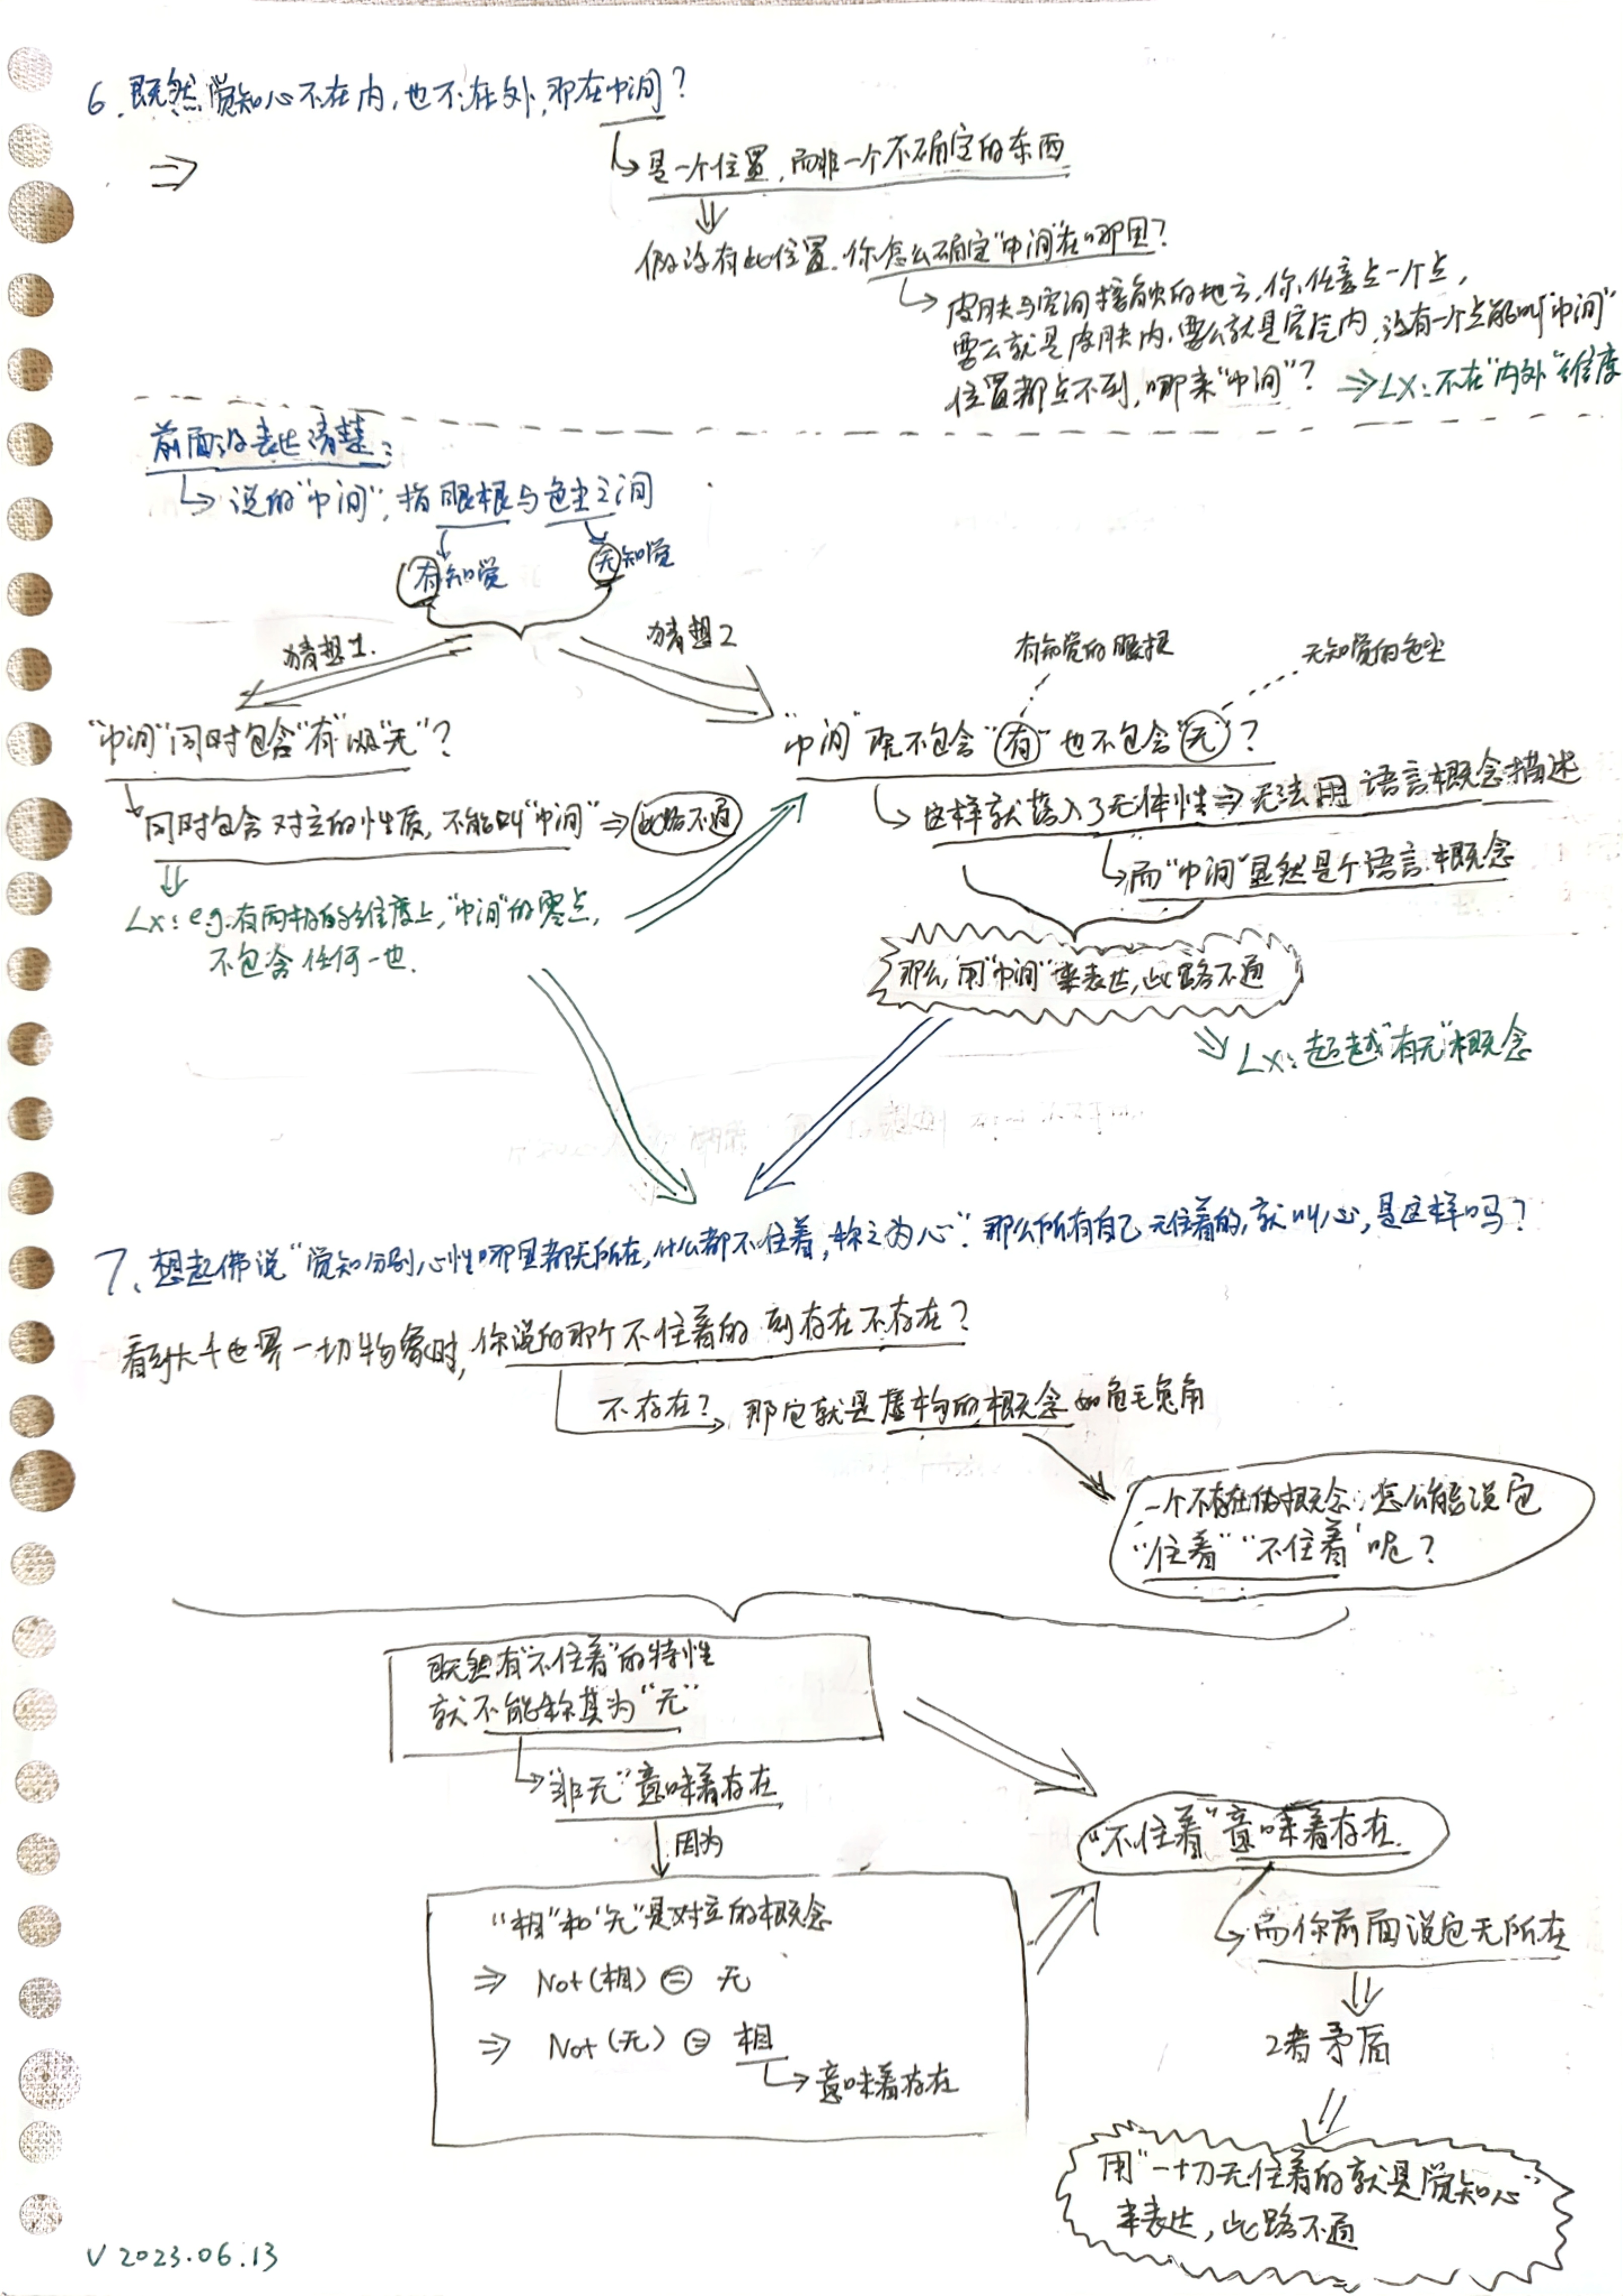 6. 既然觉知心不在内,也不在外,那在中间?
⇒
↳ 是一个位置,而非一个不确定的东西
⇓
假设有此位置,你怎么确定"中间"在哪里?
↳ 皮肤与空间接触的地方,你任意点一个点,
要么就是皮肤内,要么就是空间内,没有一个点能叫"中间"
位置都点不到,哪来"中间"? ⇒ LX:不在"内外"维度
前面没表达清楚:
↳ 说的"中间",指眼根与色尘之间
有知觉 无知觉
猜想1. 猜想2
有知觉的眼根 无知觉的色尘
"中间"同时包含"有"以"无"?
"中间"既不包含"有"也不包含"无"?
同时包含对立的性质,不能叫"中间" ⇒ 此路不通
↳ 这样就落入了无体性 ⇒ 无法用语言概念描述
↳ 而"中间"显然是个语言概念
LX: e.g.有两极的维度上,"中间"的零点,
不包含任何一边.
那么,用"中间"来表达,此路不通
⇒ LX:超越"有无"概念
7. 想起佛说"觉知分别心性哪里都无所在,什么都不住着,称之为心".那么所有自己无住着的,就叫心,是这样吗?
看到大千世界一切物象时,你说的那个不住着的到存在不存在?
不存在? → 那它就是虚构的概念如龟毛兔角
一个不存在的概念,怎么能说它
"住着""不住着"呢?
既然有"不住着"的特性
就不能称其为"无"
↳ "非无"意味着存在
因为
"不住着"意味着存在.
"相"和"无"是对立的概念
⇒ Not(相) = 无
⇒ Not(无) = 相
↳ 意味着存在
↳ 而你前面说它无所在
⇓
2者矛盾
⇓
用"一切无住着的就是觉知心"
来表达,此路不通
V 2023.06.13